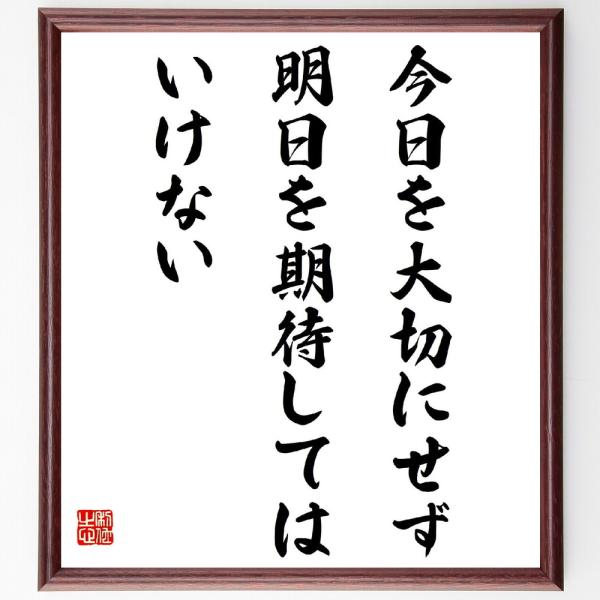 今日を大切にせず
明日を期待しては
いけない